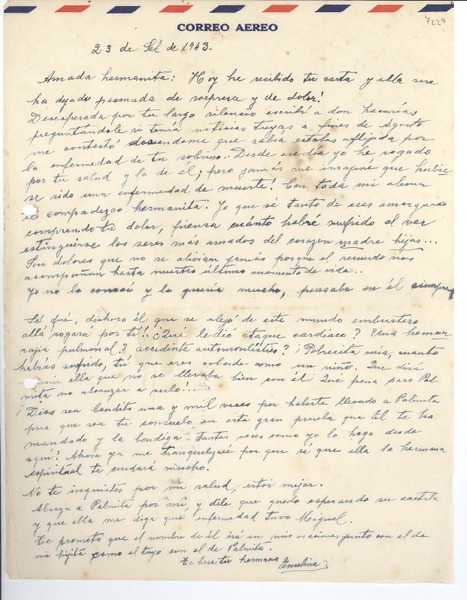 7229
CORREO AEREO
23 de Set de 1943.
Amada hermanita: Hoy he recibido tu carta y ella me
ha dejado pasmada de sorpresa y de dolor!
Desesperada por tu largo silencio escribí a don Zacarías,
preguntándole si tenía noticias tuyas a fines de Agosto
me contestó desiendome que sabía estabas aflijida por
la enfermedad de tu sobrino. Desde ese día yo he rogado
por tu salud y la de él; pero jamás me imaginé que hubie
se sido una enfermedad de muerte! Con toda mi alma
te compadezco hermanita. Yo que sé tanto de esas amarguras
comprendo tu dolor, piensa cuánto habré sufrido al ver
extinguirse los seres más amados del corazón madre hijas...
Son dolores que no se alivian jamás porque el recuerdo nos
acompañan hasta nuestro último momento de vida...
Yo no lo conocí y lo quería mucho, pensaba en él siempre
Sé qué, dichoso él que se alejó de este mundo embustero
allá rogará por ti!! ¿Qué le dió ataque cardíaco? Una hemor
rajia pulmonal? accidente automovilístico? ¡Pobrecita mía, cuanto
habrás sufrido, tú que eres cobarde como un niño. Que dirá
ella que no se llevaba bien con él! Qué pena para Pal
mita no alcanzar a verlo!
¡Dios sea bendito una y mil veces por haberte llevado a Palmita
para que sea tu consuelo en esta gran prueba que El te ha
mandado y la bendiga tantas veces como yo lo hago desde
aquí! Ahora ya me tranquilizaré por que sé que ella la hermana
espiritual te cuidará mucho.
No te inquietes por mi salud, estoi mejor.
Abraza a Palmita por mí, y dile que quedo esperando su cartita
y que ella me diga que enfermedad tuvo Miguel.
Te prometo que el nombre de él irá en mis oraciones junto con el de
mi hijita como el tuyo con el de Palmita.
Te besa tu hermana Emelina